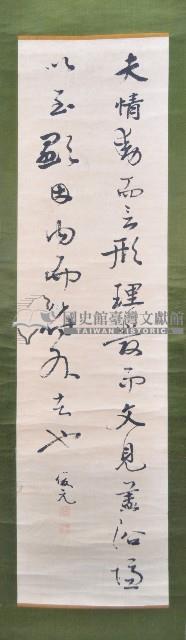 夫情動而言形理發而文見蓋沿隱
以至顯因內而符外者也
俊元
國史館臺灣文獻館
TAIWAN HISTORICA